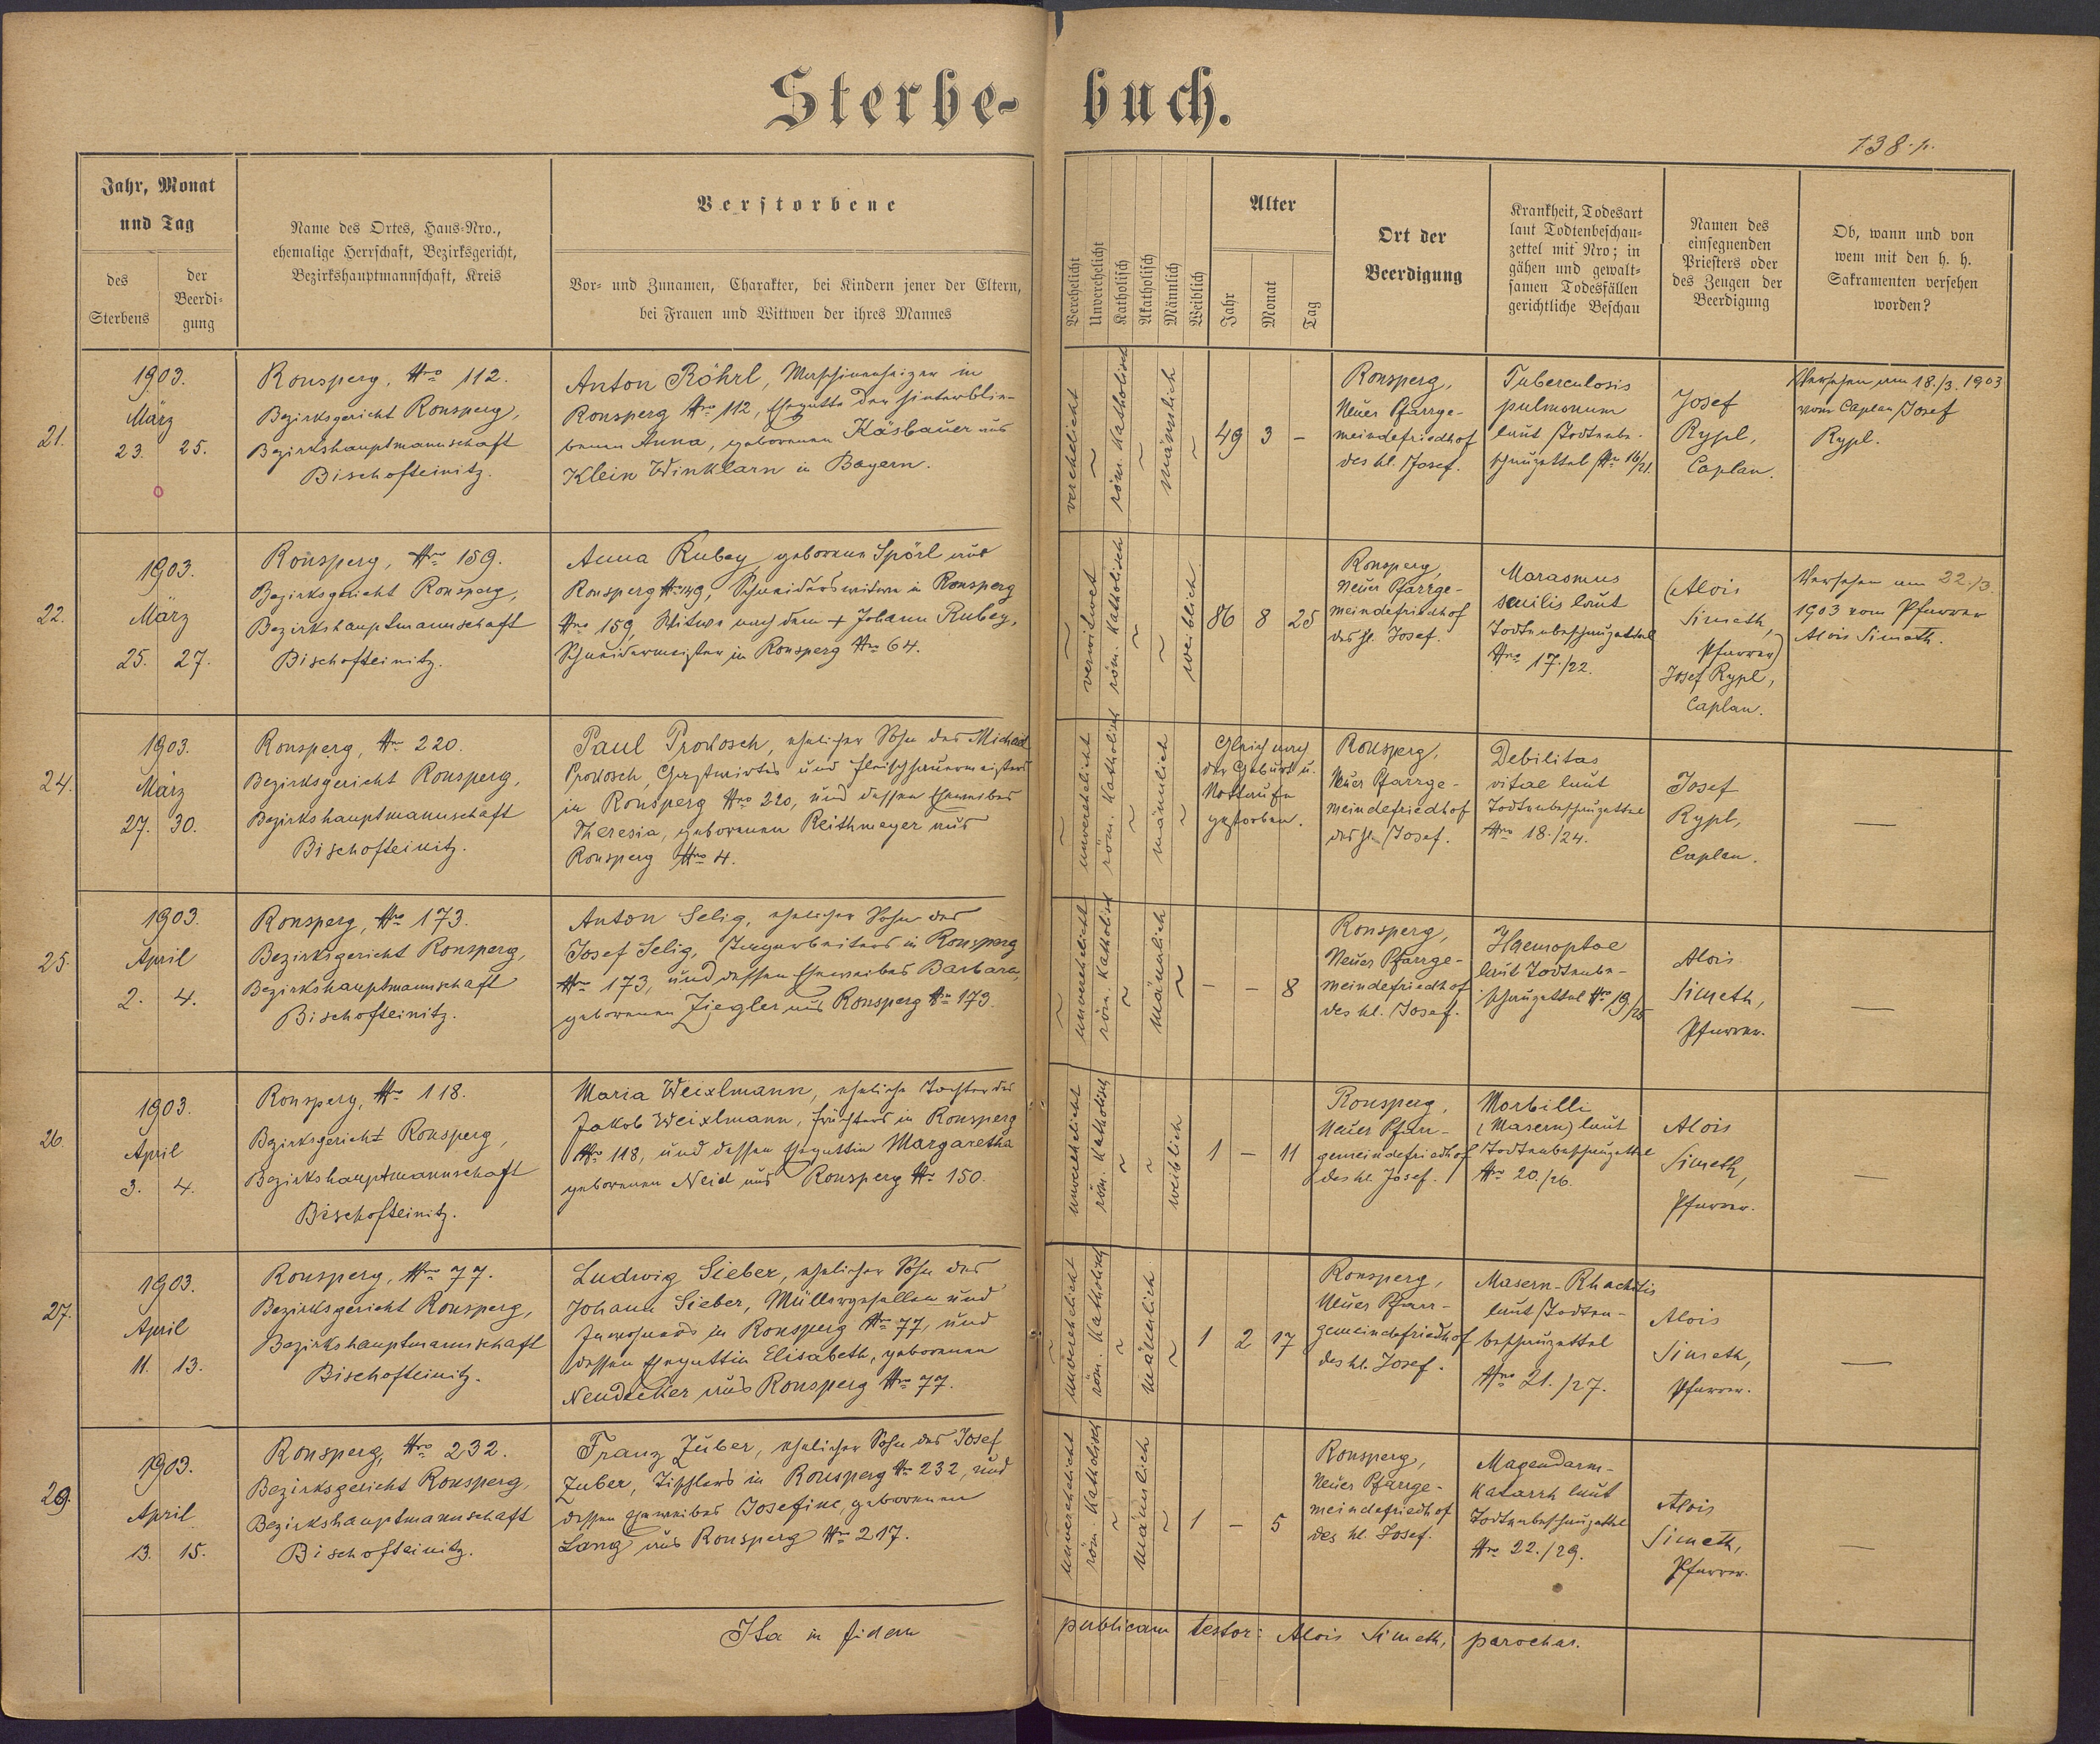 Sterbe-buch.
138.
Jahr, Monat
und Tag
des
Sterbens
der
Beerdi-
gung
Name des Ortes, Haus-Nro.,
ehemalige Herrschaft, Bezirksgericht,
Bezirkshauptmannschaft, Kreis
Verstorbene
Vor- und Zunamen, Charakter, bei Kindern jener der Eltern,
bei Frauen und Wittwen der ihres Mannes
Verehelicht
Unverehelicht
Katholisch
Akatholisch
Männlich
Weiblich
Alter
Jahr
Monat
Tag
Ort der
Beerdigung
Krankheit, Todesart
laut Todtenbeschau-
zettel mit Nro; in
gähen und gewalt-
samen Todesfällen
gerichtliche Beschau
Namen des
einsegnenden
Priesters oder
des Zeugen der
Beerdigung
Ob, wann und von
wem mit den h. h.
Sakramenten versehen
worden?
21.
1903.
März
23. 25.
Ronsperg, Nro 112.
Bezirksgericht Ronsperg,
Bezirkshauptmannschaft
Bischofteinitz.
Anton Röhrl, Maschinenheizer in
Ronsperg Nro 112, Ehegatte der hinterblie-
benen Anna, geborenen Käsbauer aus
Klein Winklarn in Bayern.
verehelicht
~
röm. katholisch
~
männlich
~
49 3 –
Ronsperg,
Neuer Pfarrge-
meindefriedhof
des hl. Josef.
Tuberculosis
pulmonum
laut Todtenbe-
schauzettel Nro 16/21.
Josef
Rypl,
Caplan.
Versehen am 18./3. 1903
vom Caplan Josef
Rypl.
22.
1903.
März
25. 27.
Ronsperg, Nro 159.
Bezirksgericht Ronsperg,
Bezirkshauptmannschaft
Bischofteinitz.
Anna Rubey, geborene Spörl aus
Ronsperg Nro 149, Schneiderswitwe in Ronsperg
Nro 159, Witwe nach dem + Johann Rubey,
Schneidermeister in Ronsperg Nro 64.
~
verwitwet
röm. katholisch
~
~
weiblich
86 8 25
Ronsperg,
Neuer Pfarrge-
meindefriedhof
des hl. Josef.
Marasmus
senilis laut
Todtenbeschauzettel
Nro 17./22.
(Alois
Simeth,
Pfarrer)
Josef Rypl,
Caplan.
Versehen am 22./3.
1903 vom Pfarrer
Alois Simeth.
24.
1903.
März
27. 30.
Ronsperg, Nro 220.
Bezirksgericht Ronsperg,
Bezirkshauptmannschaft
Bischofteinitz.
Paul Prokosch, ehelicher Sohn des Michael
Prokosch, Gastwirtes und Fleischhauermeisters
in Ronsperg Nro 220, und dessen Eheweibes
Theresia, geborenen Reithmeyer aus
Ronsperg Nro 4.
~
unverehelicht
röm. katholisch
~
männlich
~
Gleich nach
der Geburt u.
Nottaufe
gestorben.
Ronsperg,
Neuer Pfarrge-
meindefriedhof
des hl. Josef.
Debilitas
vitae laut
Todtenbeschauzettel
Nro 18./24.
Josef
Rypl,
Caplan.
—
25.
1903.
April
2. 4.
Ronsperg, Nro 173.
Bezirksgericht Ronsperg,
Bezirkshauptmannschaft
Bischofteinitz.
Anton Selig, ehelicher Sohn des
Josef Selig, Tagarbeiters in Ronsperg
Nro 173, und dessen Eheweibes Barbara,
geborenen Ziegler aus Ronsperg Nro 173.
~
unverehelicht
röm. katholisch
~
männlich
~
– – 8
Ronsperg,
Neuer Pfarrge-
meindefriedhof
des hl. Josef.
Haemoptoe
laut Todtenbe-
schauzettel Nro 19/25
Alois
Simeth,
Pfarrer.
—
26.
1903.
April
3. 4.
Ronsperg, Nro 118.
Bezirksgericht Ronsperg,
Bezirkshauptmannschaft
Bischofteinitz.
Maria Weixlmann, eheliche Tochter des
Jakob Weixlmann, in Ronsperg
Nro 118, und dessen Ehegattin Margaretha
geborenen Neid aus Ronsperg Nro 150.
unverehelicht
röm. katholisch
~
~
weiblich
1 – 11
Ronsperg,
Neuer Pfarr-
gemeindefriedhof
des hl. Josef.
Morbilli
(Masern) laut
Todtenbeschauzettel
Nro 20./26.
Alois
Simeth,
Pfarrer.
—
27.
1903.
April
11. 13.
Ronsperg, Nro 77.
Bezirksgericht Ronsperg,
Bezirkshauptmannschaft
Bischofteinitz.
Ludwig Sieber, ehelicher Sohn des
Johann Sieber, Müllergesellen und
Inwohners in Ronsperg Nro 77, und
dessen Ehegattin Elisabeth, geborenen
Neudecker aus Ronsperg Nro 77.
~
unverehelicht
röm. katholisch
~
männlich
~
1 2 17
Ronsperg,
Neuer Pfarr-
gemeindefriedhof
des hl. Josef.
Masern-Rhachitis
laut Todten-
beschauzettel
Nro 21./27.
Alois
Simeth,
Pfarrer.
—
29.
1903.
April
13. 15.
Ronsperg, Nro 232.
Bezirksgericht Ronsperg,
Bezirkshauptmannschaft
Bischofteinitz.
Franz Zuber, ehelicher Sohn des Josef
Zuber, Tischlers in Ronsperg Nro 232, und
dessen Eheweibes Josefine, geborenen
Lang aus Ronsperg Nro 217.
~
unverehelicht
röm. katholisch
~
männlich
~
1 – 5
Ronsperg,
Neuer Pfarrge-
meindefriedhof
des hl. Josef.
Magendarm-
katarrh laut
Todtenbeschauzettel
Nro 22./29.
Alois
Simeth,
Pfarrer.
—
Ita in fidem publicam testor: Alois Simeth, parochus.